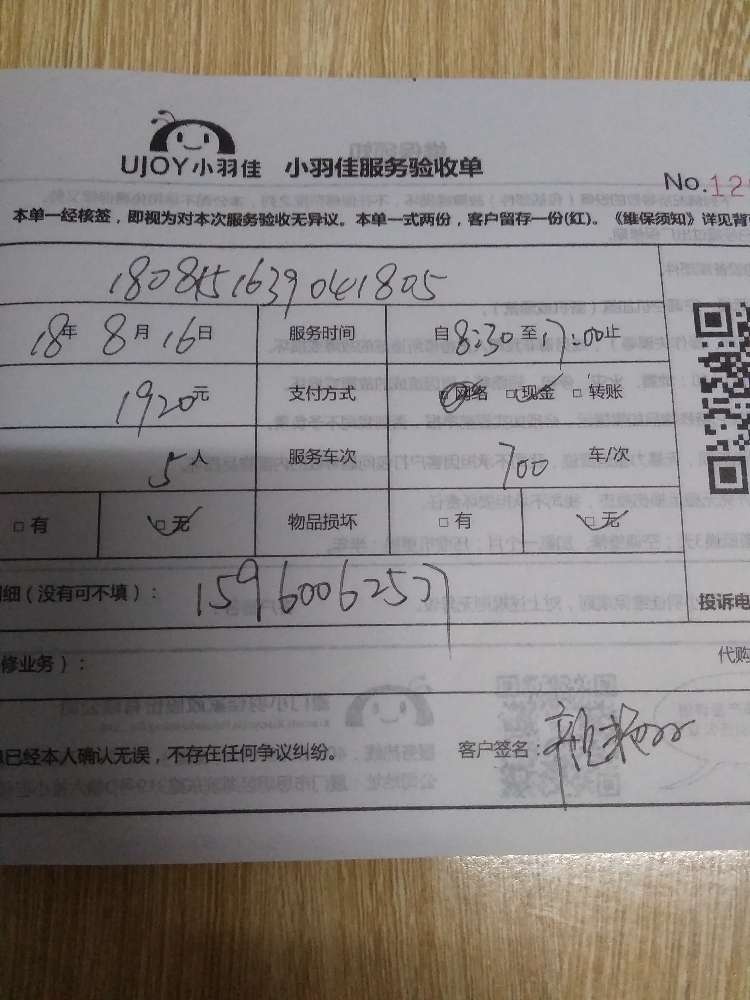 UJOY小羽佳 小羽佳服务验收单
No.12
本单一经核签，即视为对本次服务验收无异议。本单一式两份，客户留存一份(红)。《维保须知》详见背
18年 8月16日 服务时间 自8:30至17:00止
1920元 支付方式 网络 □现金 □转账
5人 服务车次 700 车/次
□有 □无 物品损坏 □有 □无
细（没有可不填）： 15960062577
投诉电
修业务）：
代购
已经本人确认无误，不存在任何争议纠纷。 客户签名：